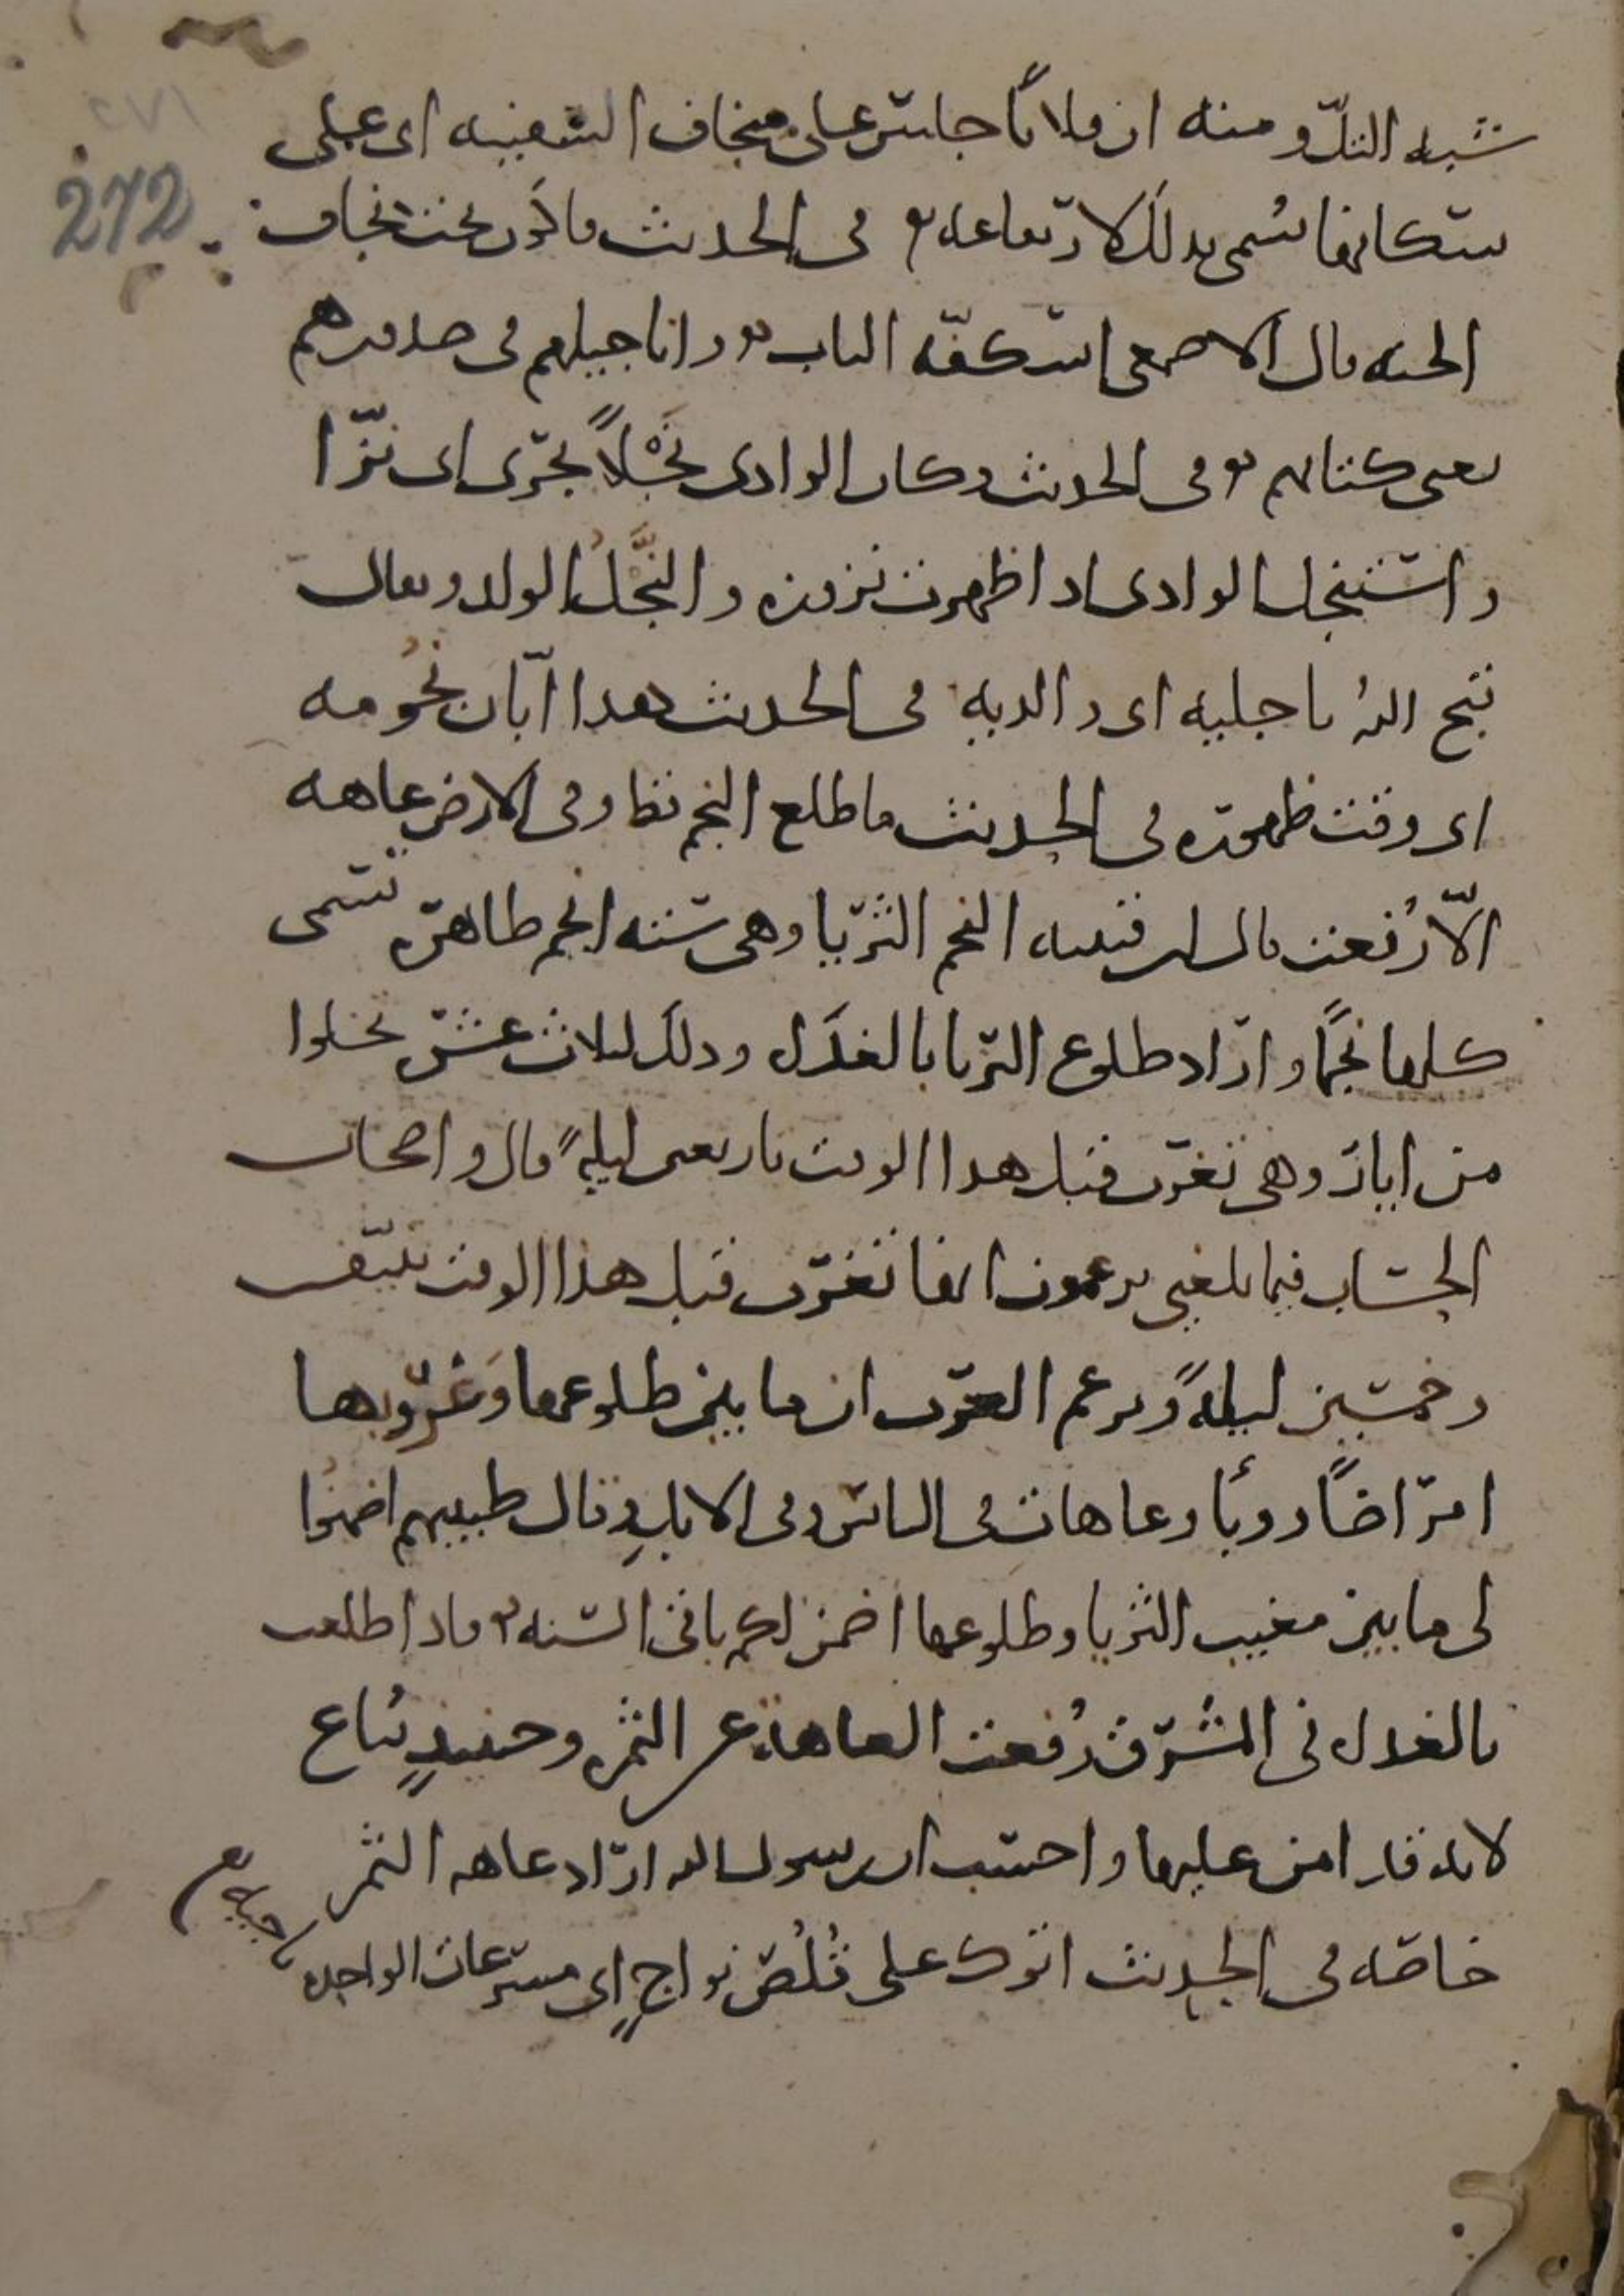 ٢٧١
272
شبه التلّ ومنه ان فلانًا جلس على منجاف السفينه اى على
سكانها سُمى بذلك لارتفاعه في الحديث فاكون تحت نجاف
الجنه قال الاصمعى اسكفّه الباب و اناجيلهم في صدورهم
يعنى كتابهم وفى الحديث وكان الوادى نَجْلاً يجرى اى نزّا
واستنجل الوادى اذا ظهرت نزوزه والنَّجْلُ الولد ويقال
قبح اللهُ ناجليه اى والديه في الحديث هذا ابّان نجُومه
اى وقت ظهوره في الحديث ما طلع النجم قط وفى الارض عاهه
الّا رُفعت قال ابن قتيبه النجم الثريّا وهى ستته انجم ظاهره تسمى
كلها نجمًا واراد طلوع الثريا بالغداه وذلك لثلاث عشر تخلوا
من ايار وهى تغرب قبل هذا الوقت باربعين ليلهً قال واصحاب
الحساب فيما بلغنى يزعمون انها تغرب قبل هذا الوقت بنيّف
وخمسين ليلةً ويزعم العرب ان ما بين طلوعها وَغُرُوبها
امراضًا ووبأ وعاهات في الناس وفى الابلِ وقال طبيبهم اضمنُوا
لى ما بين مغيب الثريا وطلوعها اضمن لكم باقى السنه فاذا طلعت
بالغداه فى المشرق رُفعت العاهة عن الثمره وحينيذٍ تُباع
لانه قد امن عليها واحسب ان رسول الله اراد عاهه الثمر
خاصّه في الحديث اتوك على قُلُصٍ نواجٍ اى مسرعات الواحده